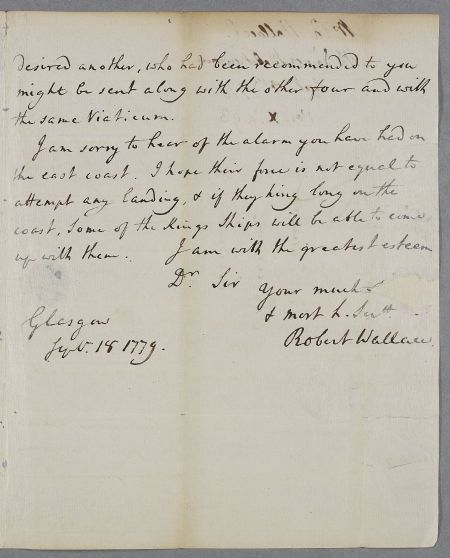 desired another, who had been recommended to you
might be sent along with the other four and with
the same Viaticum.
I am sorry to hear of the alarm you have had on
the east coast. I hope their force is not equal to
attempt any landing, & if they hing long on the
coast, Some of the Kings Ships will be able to come
up with them. I am with the greatest esteem
Dr. Sir your much
& most h. Servt.
Robert Wallace.
Glasgow
Septr. 18 1779.